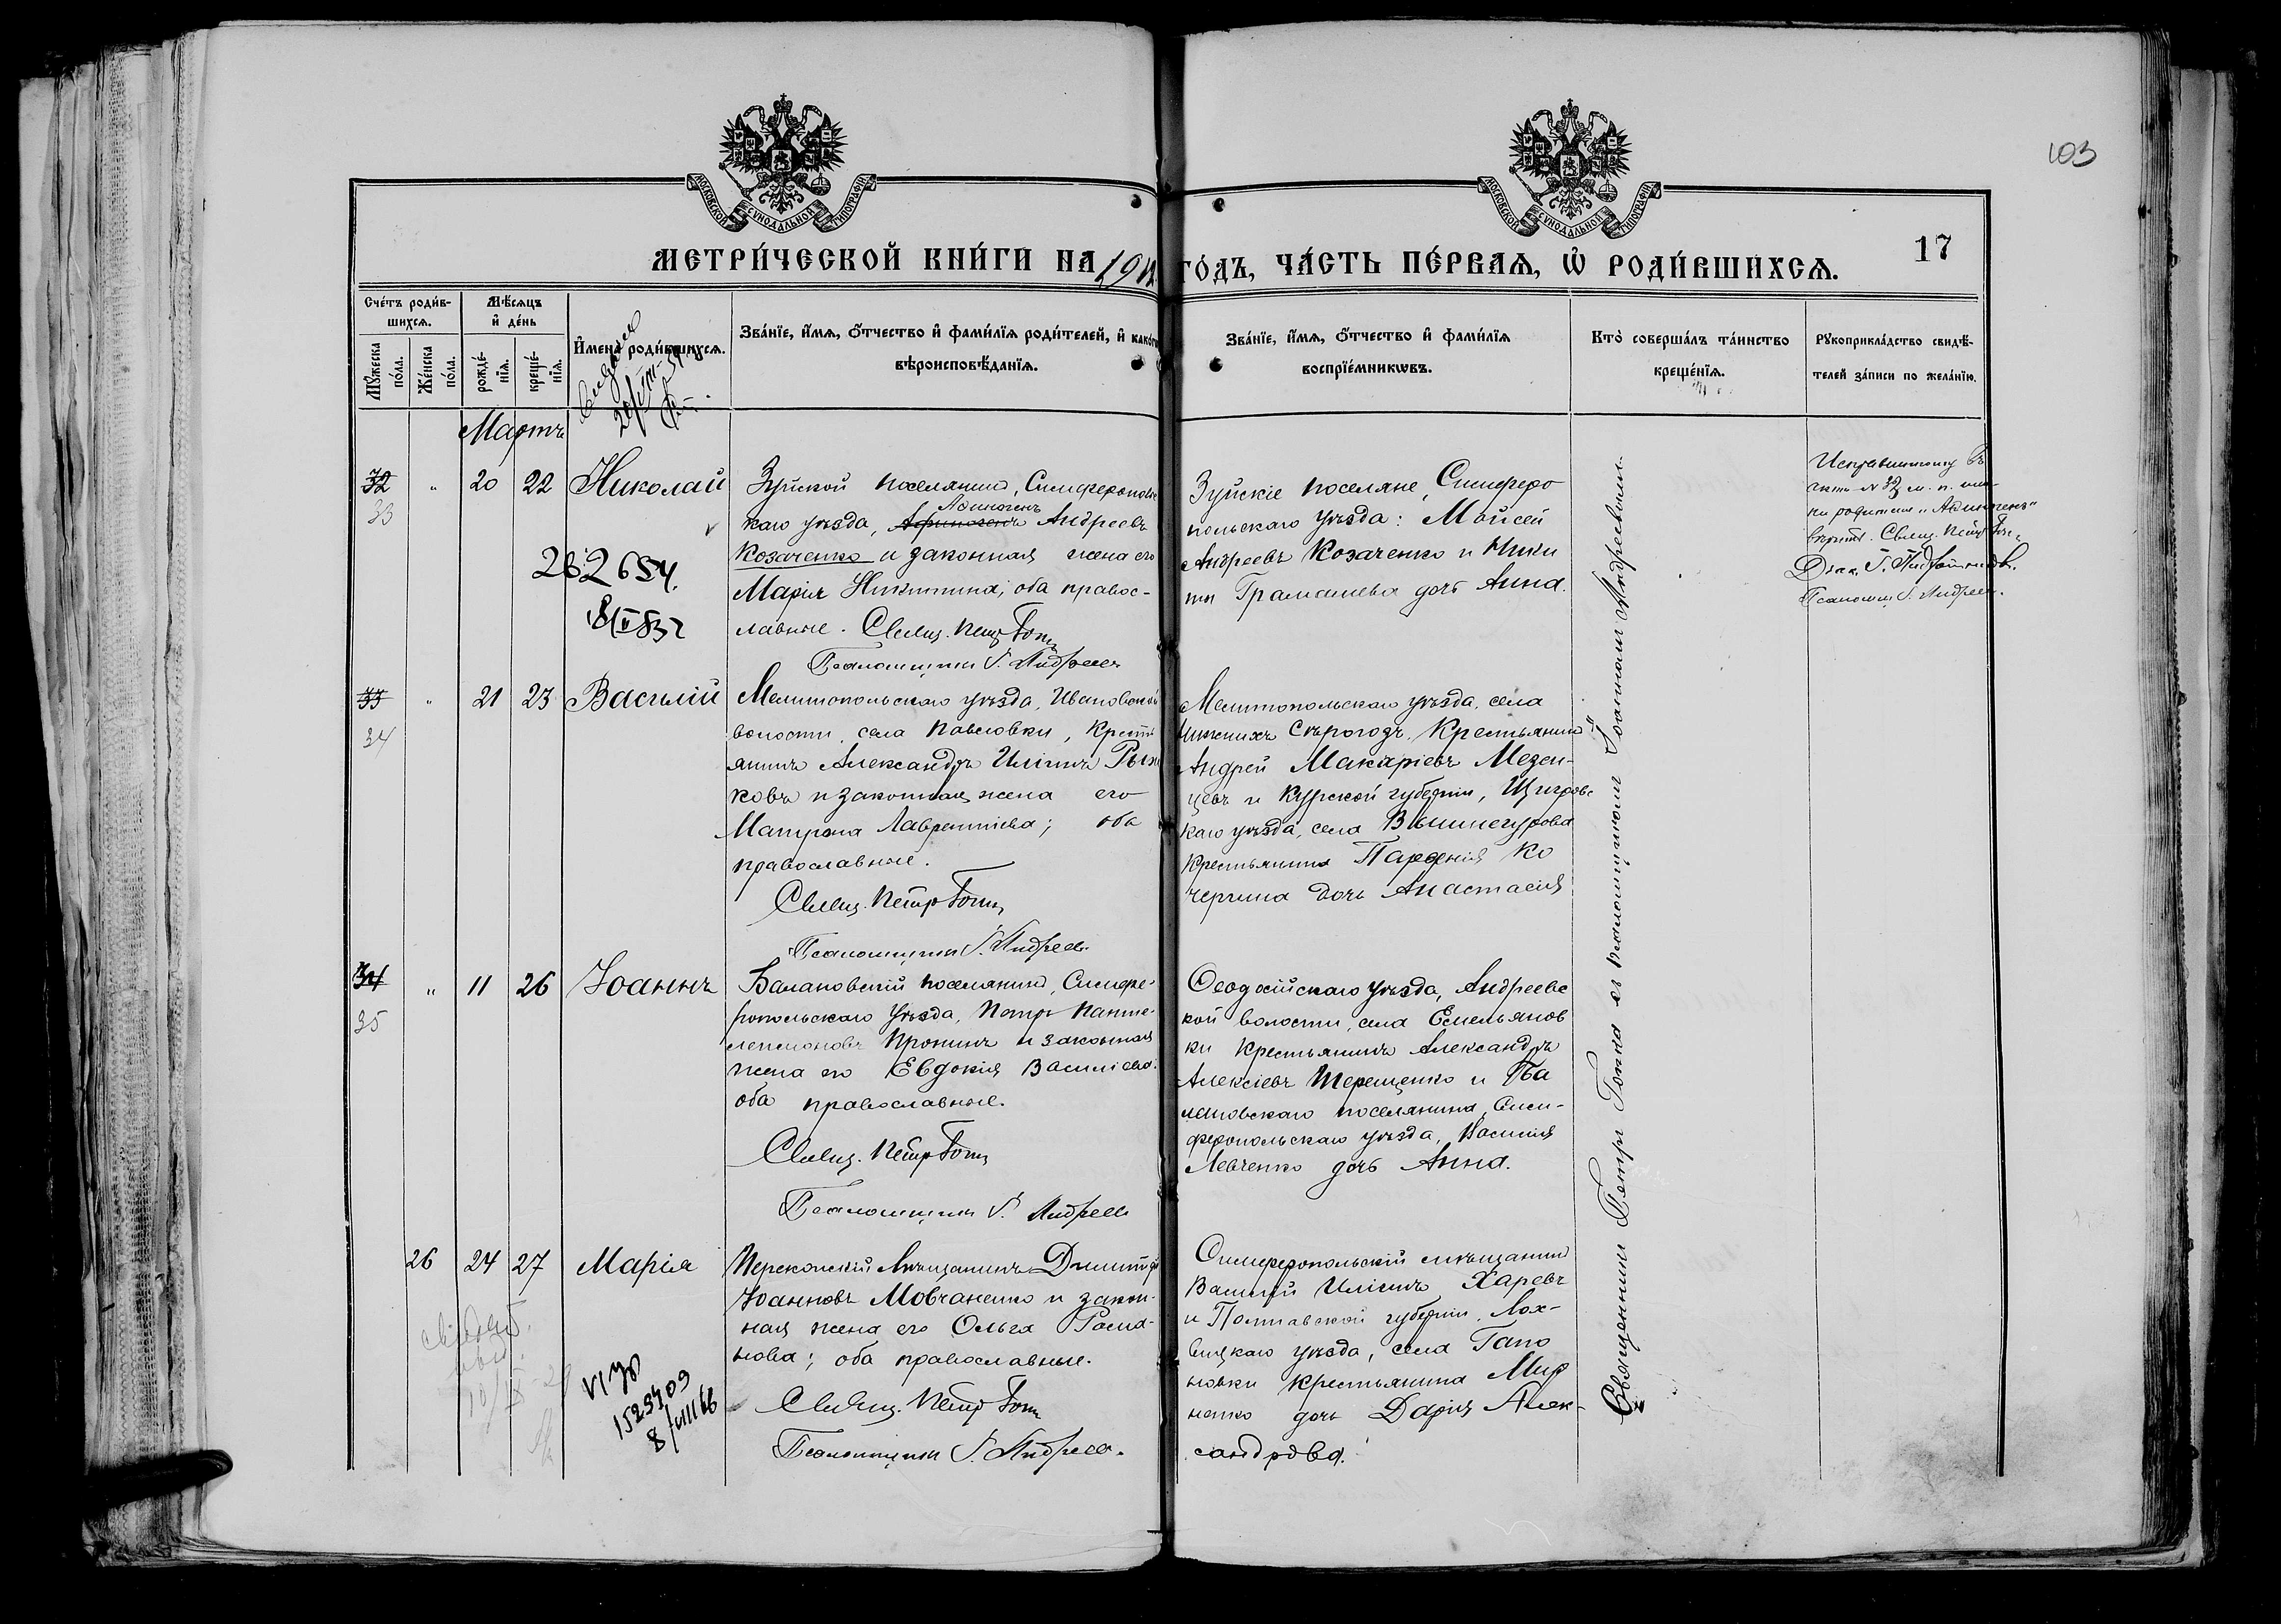 103
МОСКОВСКОЙ СУНОДАЛЬНОЙ ТИПОГРАФІИ
МОСКОВСКОЙ СУНОДАЛЬНОЙ ТИПОГРАФІИ
МЕТРИ́ЧЕСКОЙ КНИ́ГИ НА 1912
ГО́ДЪ, ЧА́СТЬ ПЕ́РВАЯ, Ѡ РОДИ́ВШИХСЯ.
17
Сче́тъ роди́в-
шихся.
Мѣ́сяцъ
и де́нь
Му́жеска по́ла.
Же́нска по́ла.
рожде́-
нїя.
креще́-
нїя.
Имена̀ роди́вшихся.
Зва́нїе, и́мя, о́тчество и фами́лїя роди́телей, и како́го
вѣроисповѣ́данїя.
Зва́нїе, и́мя, о́тчество и фами́лїя
воспрїе́мникѡвъ.
Кто̀ соверша́лъ та́инство
креще́нїя.
Рукоприкла́дство свидѣ́-
телей за́писи по жела́нїю.
Мартъ
32 " 20 22 Николай
33
Зуйской поселянинъ, Симферополь
каго уѣзда, Афиногенъ Авиногенъ Андреевъ
Козаченко и законная жена его
Марія Никитина; оба правос-
лавные. Свящ. Петр Готц
Псаломщикъ І. Андреевъ
262654
Зуйскіе поселяне, Симферо
польскаго уѣзда: Мойсей
Андреевъ Козаченко и Ники
ты Граматева дочь Анна.
Исправленному въ
актѣ № 32 м. п. име-
ни родителя "Авиногенъ"
вѣрить. Свящ. Петр Готц
Псаломщ. І. Андреев.
33 " 21 23 Василій
34
Мелитопольскаго уѣзда, Ивановской
волости, села Павловки, Кресть
янинъ Александръ Иліинъ Рыж
ковъ и законная жена его
Матрона Лаврентіева; оба
православные.
Свящ. Петр Готц
Псаломщикъ І. Андреевъ.
Мелитопольскаго уѣзда, села
Нижнихъ Сѣрогозъ, Крестьянинъ
Андрей Макаріевъ Мезен-
цевъ и Курской губерніи, Щигровс
каго уѣзда, села Вышнегурова
Крестьянина Парфенія Ко
чергина дочь Анастасія
34 " 11 26 Іоаннъ
35
Балановскій поселянинъ, Симфе-
ропольскаго уѣзда, Петръ Панте-
леимоновъ Пронинъ и законная
жена его Евдокія Василіева:
оба православные.
Свящ. Петр Готц
Псаломщикъ І. Андреевъ
Ѳеодосійскаго уѣзда, Андреевс
кой волости, села Емельянов
ки Крестьянинъ Александръ
Алексіевъ Терещенко и Ба
лановскаго поселянина, Сим-
феропольскаго уѣзда, Василія
Левченко дочь Анна.
26 24 27 Марія
Перекопскій мѣщанинъ Димитрій
Іоанновъ Мовчаненко и закон-
ная жена его Ольга Рома-
нова; оба православные.
Свящ. Петр Готц
Псаломщикъ І. Андреевъ.
1529409
8/VIII 66
Симферопольскій мѣщанинъ
Василій Иліинъ Харевъ
и Полтавской губерніи, Лох-
вицкаго уѣзда, села Гапо
новки Крестьянина Мир
ненко дочь Дарія Алек-
сандрова.
Священникъ Петръ Готца съ псаломщикомъ Іоанномъ Андреевымъ.